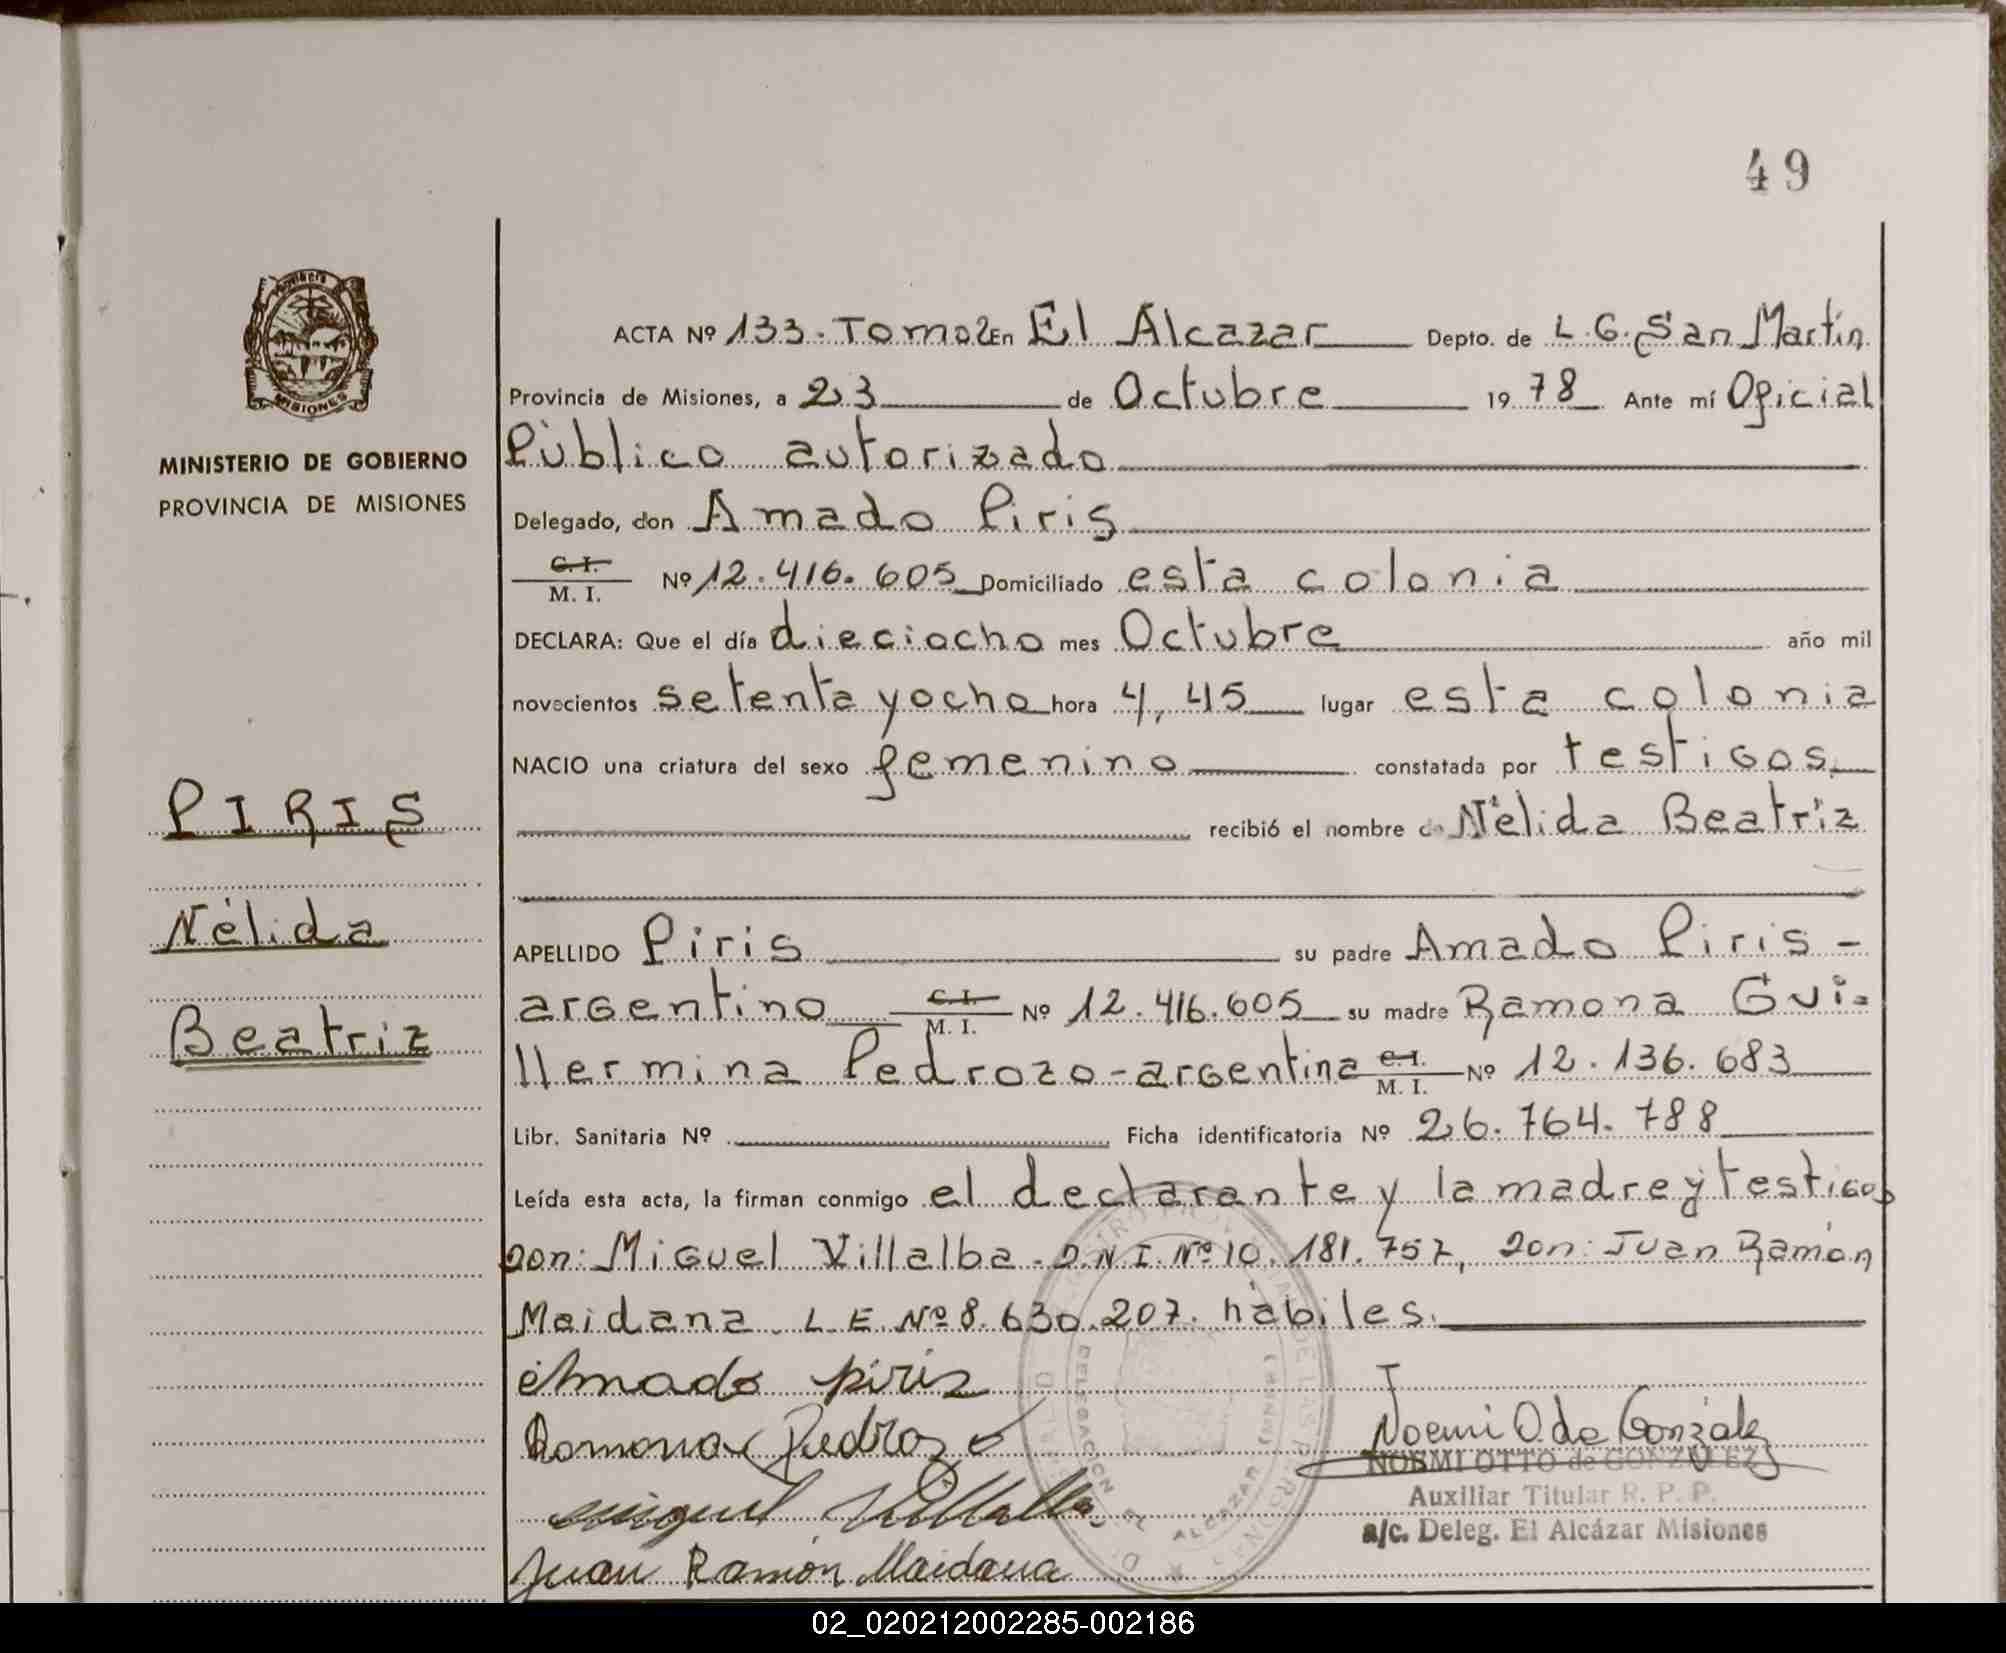 49
MISIONES
MINISTERIO DE GOBIERNO
PROVINCIA DE MISIONES
PIRIS
Nélida
Beatriz
ACTA Nº 133. Tomo 2 En El Alcazar Depto. de L. G. San Martín
Provincia de Misiones, a 23 de Octubre 1978 Ante mí Oficial
Público autorizado
Delegado, don Amado Piris
C. I.
M. I. Nº 12.416.605 Domiciliado esta colonia
DECLARA: Que el día dieciocho mes Octubre año mil
novecientos setenta y ocho hora 4,45 lugar esta colonia
NACIO una criatura del sexo femenino constatada por testigos
recibió el nombre de Nélida Beatriz
APELLIDO Piris su padre Amado Piris -
argentino C. I. M. I. Nº 12.416.605 su madre Ramona Gui=
llermina Pedrozo-argentina C. I. M. I. Nº 12.136.683
Libr. Sanitaria Nº Ficha identificatoria Nº 26.764.788
Leída esta acta, la firman conmigo el declarante y la madre y testigos
don: Miguel Villalba. D.N.I. Nº 10.181.757, don: Juan Ramón
Maidana. L.E. Nº 8.630.207. hábiles.
Amado piris
Ramona Pedrozo
miguel Villalba
Juan Ramón Maidana
Noemi O. de González
NOEMI OTTO de GONZALEZ
Auxiliar Titular R. P. P.
a/c. Deleg. El Alcázar Misiones
DELEGACION EL ALCAZAR
02_020212002285-002186